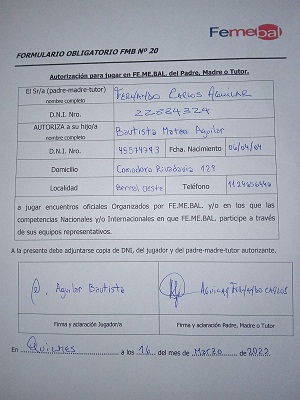 Femebal
FORMULARIO OBLIGATORIO FMB Nº 20
Autorización para jugar en FE.ME.BAL. del Padre, Madre o Tutor.
El Sr/a (padre-madre-tutor) FERNANDO CARLOS AGUILAR
nombre completo
D.N.I. Nro. 22624324
AUTORIZA a su hijo/a Bautista Mateo Aguilar
nombre completo
D.N.I. Nro. 45574793 Fcha. Nacimiento 06/04/04
Domicilio Comodoro Rivadavia 128
Localidad Bernal oeste Teléfono
a jugar encuentros oficiales Organizados por FE.ME.BAL. y/o en los que las
competencias Nacionales y/o Internacionales en que FE.ME.BAL. participe a través
de sus equipos representativos.
A la presente debe adjuntarse copia de DNI, del jugador y del padre-madre-tutor autorizante.
Aguilar Bautista AGUILAR FERNANDO CARLOS
Firma y aclaración Jugador/a Firma y aclaración Padre, Madre o Tutor
En Quilmes a los 16 del mes de Marzo de 2022